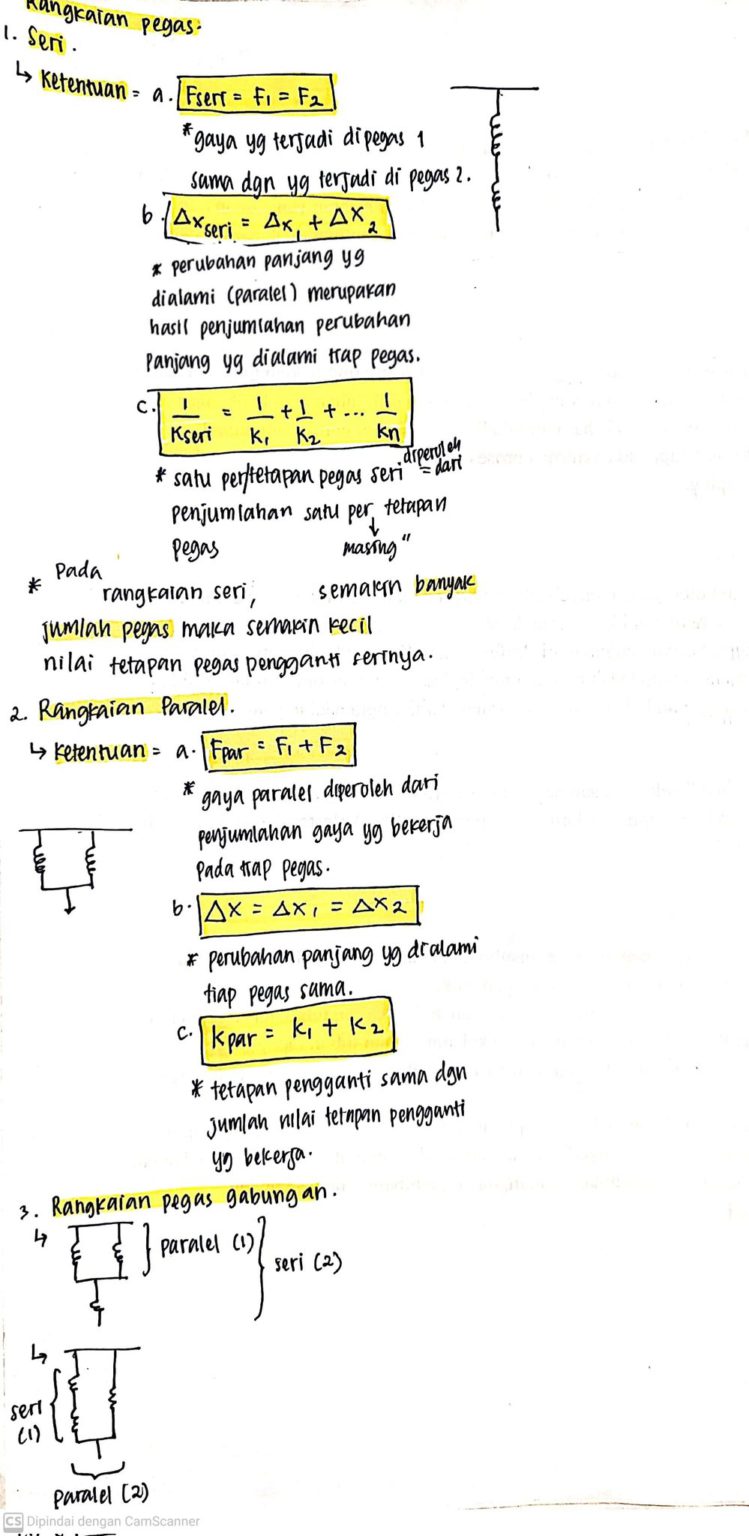 Rangkaian pegas.
1. Seri.
↳ Ketentuan = a. Fseri = F₁ = F₂
* gaya yg terjadi di pegas 1
sama dgn yg terjadi di pegas 2.
b. Δx seri = Δx₁ + Δx₂
* perubahan panjang yg
dialami (paralel) merupakan
hasil penjumlahan perubahan
panjang yg dialami tiap pegas.
c. 1/Kseri = 1/K₁ + 1/K₂ + ... 1/Kn
* satu per/tetapan pegas seri = diperoleh dari
penjumlahan satu per tetapan
pegas ↓ masing"
* Pada rangkaian seri, semakin banyak
jumlah pegas maka semakin kecil
nilai tetapan pegas pengganti serinya.
2. Rangkaian Paralel.
↳ Ketentuan = a. Fpar = F₁ + F₂
* gaya paralel diperoleh dari
penjumlahan gaya yg bekerja
pada tiap pegas.
b. Δx = Δx₁ = Δx₂
* perubahan panjang yg dialami
tiap pegas sama.
c. Kpar = K₁ + K₂
* tetapan pengganti sama dgn
jumlah nilai tetapan pengganti
yg bekerja.
3. Rangkaian pegas gabungan.
↳ } paralel (1) } seri (2)
↳
seri
(1)
paralel (2)
CS Dipindai dengan CamScanner